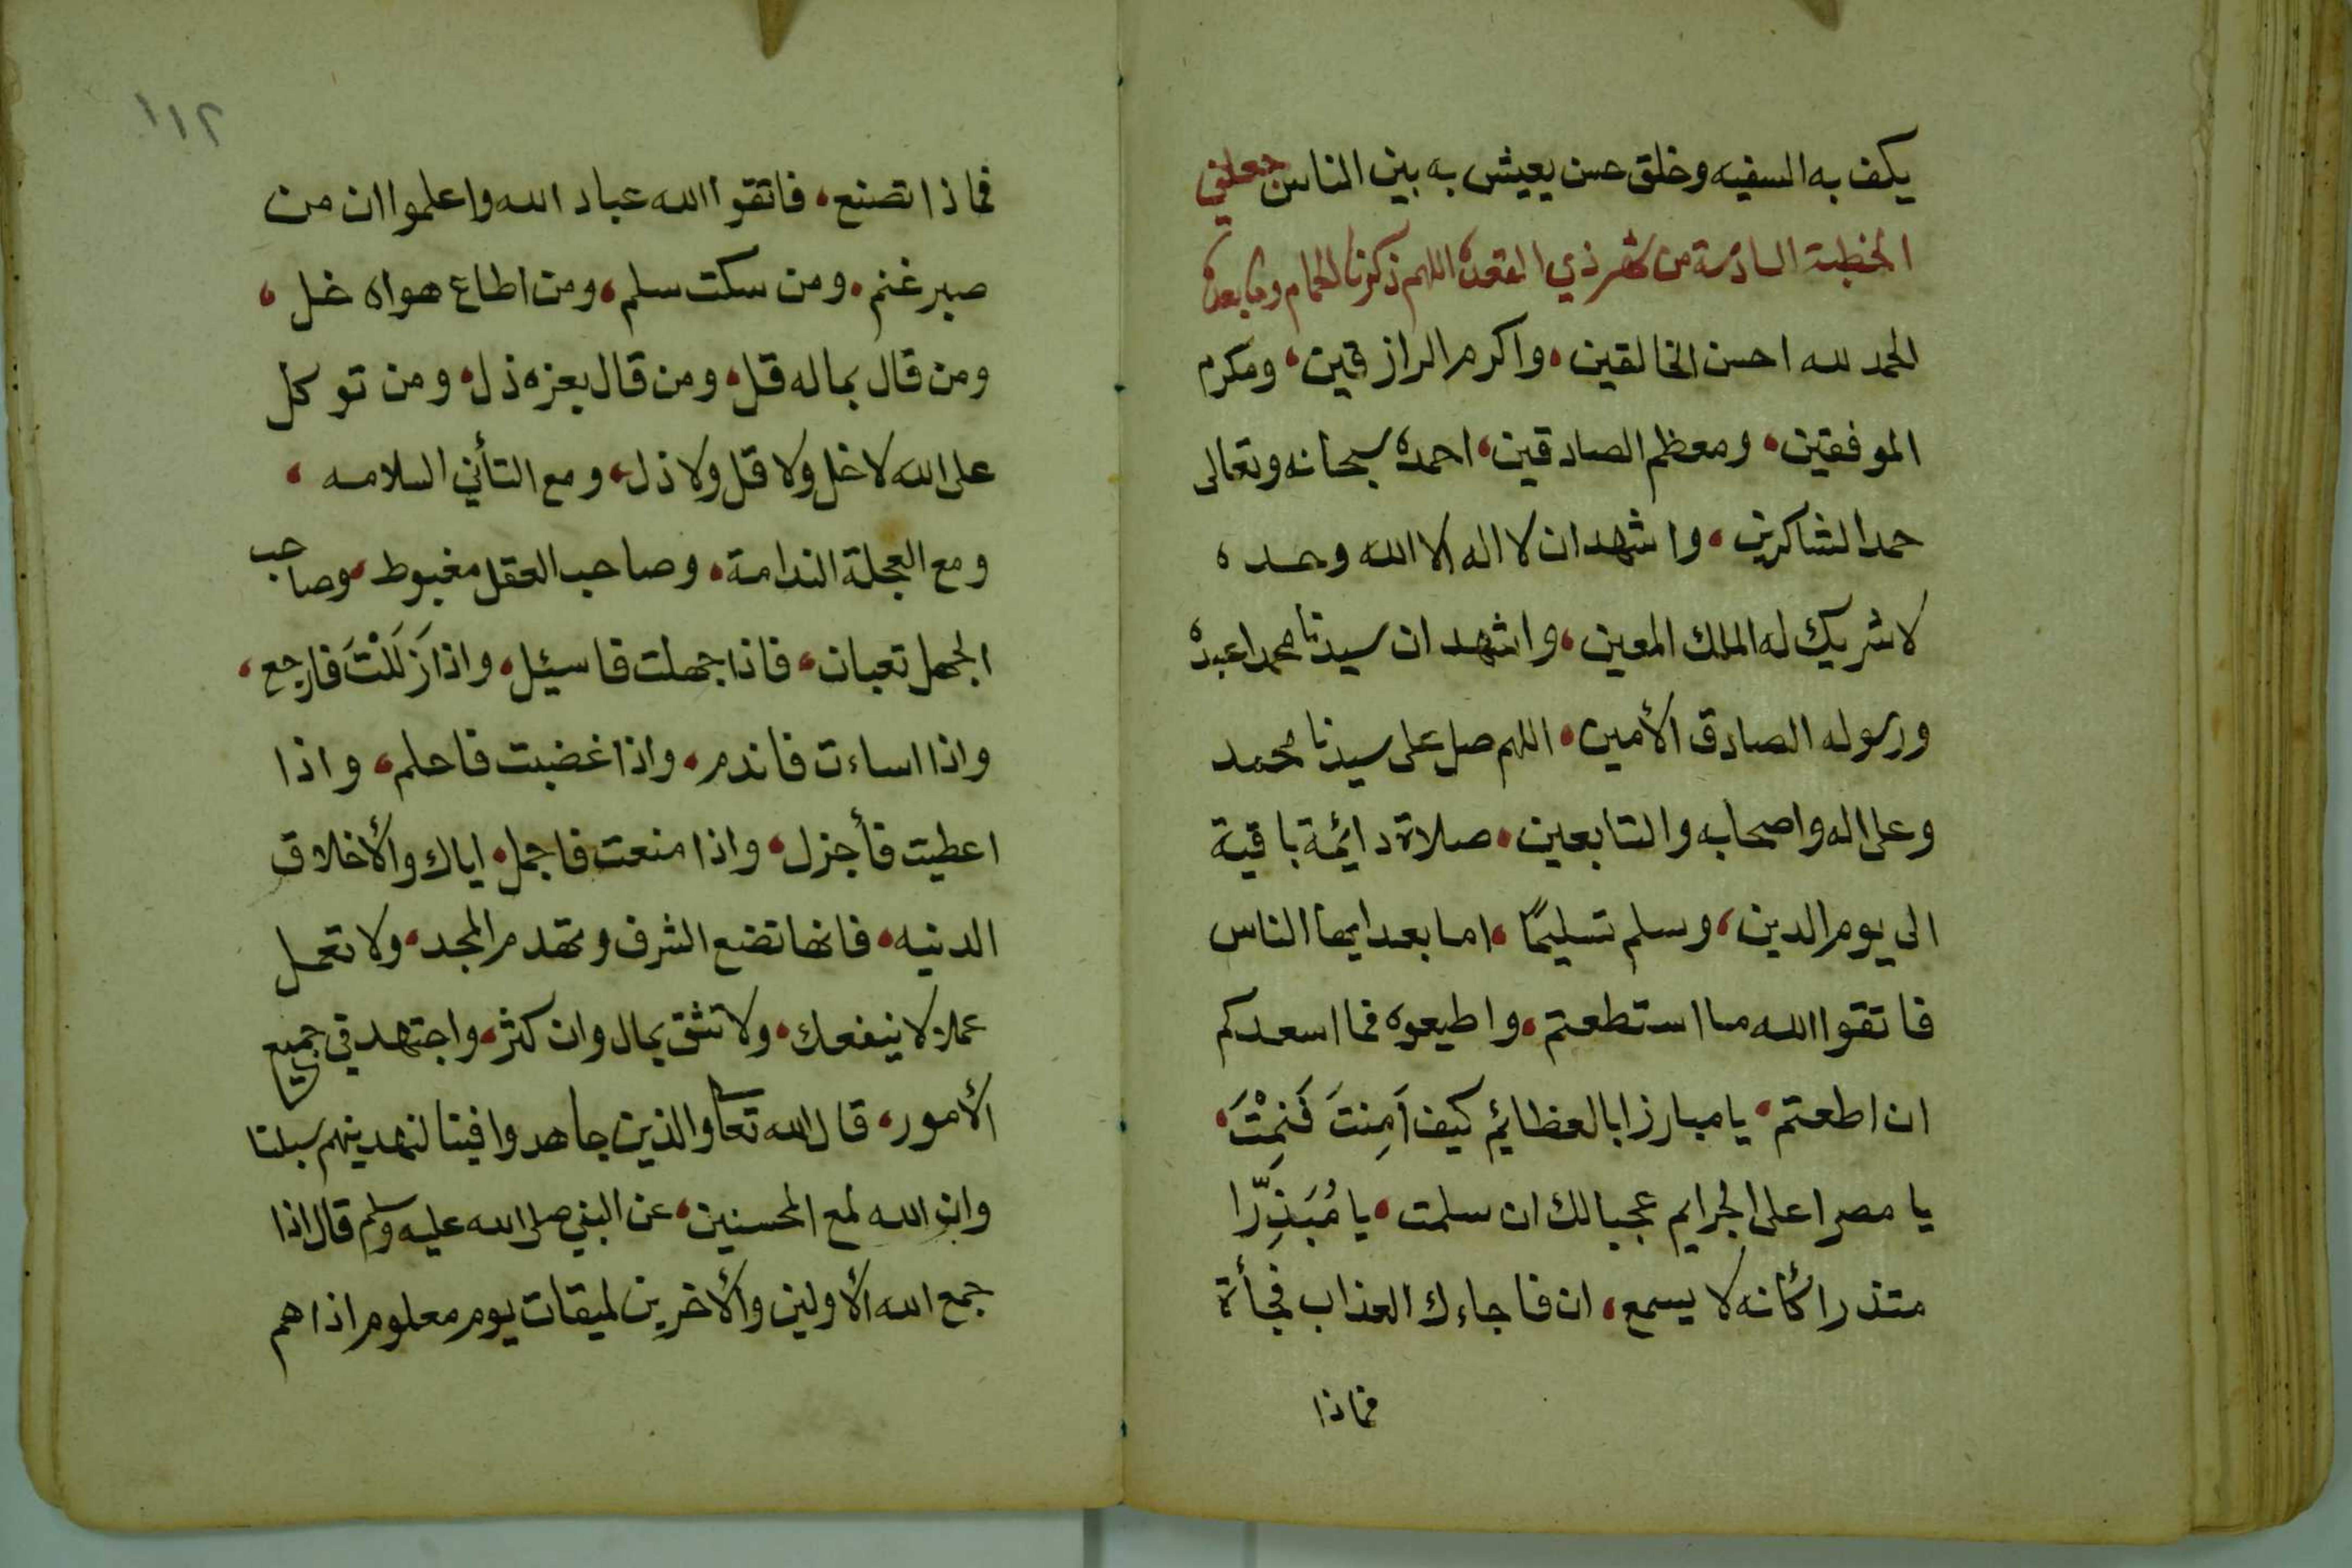 يكف به السفيه وخلق حسن يعيش به بين الناس جعلني
الخطبة السادسة من شهر ذي القعدة اللهم ذكرنا الحمام وما بعده
الحمد لله احسن الخالقين، واكرم الرازقين، ومكرم
الموفقين، ومعظم الصادقين، احمده سبحانه وتعالى
حمد الشاكرين، واشهد ان لا اله الا الله وحده
لا شريك له الملك المعين، واشهد ان سيدنا محمدا عبده
ورسوله الصادق الأمين، اللهم صل على سيدنا محمد
وعلى اله واصحابه والتابعين، صلاة دائمة باقية
الى يوم الدين، وسلم تسليمًا، اما بعد ايها الناس
فاتقوا الله ما استطعتم، واطيعوه فما اسعدكم
ان اطعتم، يا مبارزا بالعظائم كيف اَمِنتَ فَنِمْتَ،
يا مصرا على الجرايم عجبا لك ان سلمت، يا مُبَذِّرًا
متذرا كأنه لا يسمع، ان فاجاءك العذاب فجأة
فماذا
١١٢
فماذا تصنع، فاتقوا الله عباد الله واعلموا ان من
صبر غنم، ومن سكت سلم، ومن اطاع هواه ضل،
ومن قال بماله قل، ومن قال بعزه ذل، ومن توكل
على الله لا ضل ولا قل ولا ذل، ومع التأني السلامه،
ومع العجلة الندامة، وصاحب العقل مغبوط، وصاحب
الجهل تعبان، فاذا جهلت فاسئل، واذا زَلَلْتَ فارجع،
واذا اساءت فاندم، واذا غضبت فاحلم، واذا
اعطيت فأجزل، واذا منعت فاجمل، اياك والأخلاق
الدنيه، فانها تضع الشرف وتهدم المجد، ولا تعمل
عملا لا ينفعك، ولا تثق بمال وان كثر، واجتهد في جميع
الأمور، قال الله تعا والذين جاهدوا فينا لنهدينهم سبلنا
وان الله لمع المحسنين، عن النبي صلى الله عليه وسلم قال اذا
جمع الله الأولين والأخرين لميقات يوم معلوم اذا هم